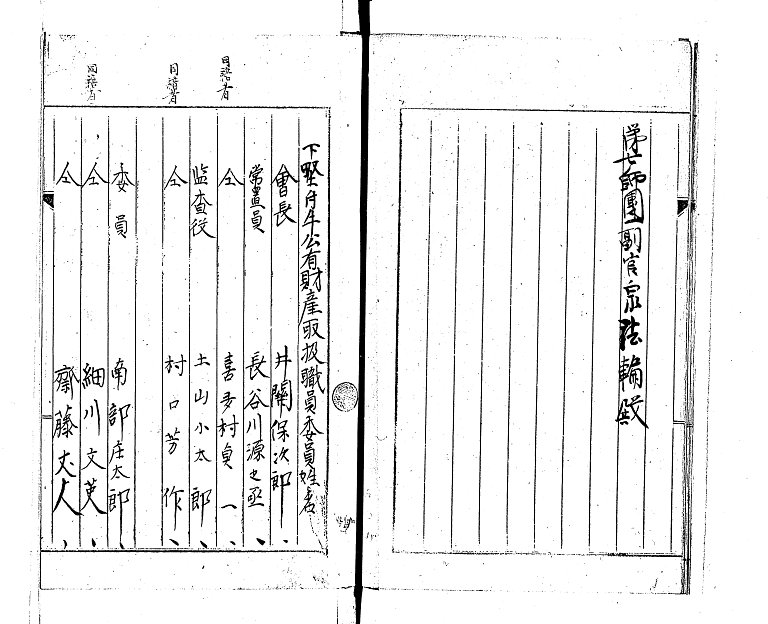 第七師團副官宗 輪殿
下 牛公有財産取扱職員委員姓名
會長 井關保次郎
常置員 長谷川源之丞
同認者
仝 喜多村貞一
監査役 土山小太郎
同認者
仝 村口芳作
委員 南部庄太郎
同認者
仝 細川文英
仝 齋藤丈人